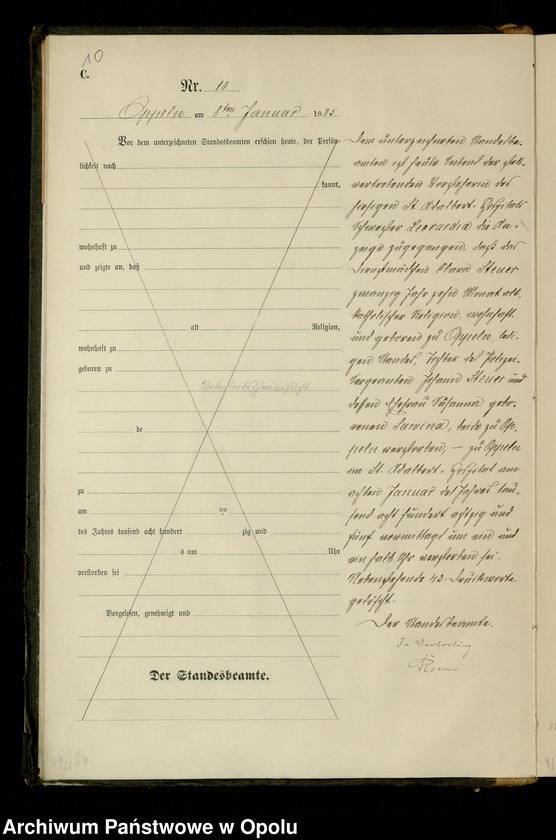 10
C.
Nr. 10
Oppeln am 8ten Januar 1885
Vor dem unterzeichneten Standesbeamten erschien heute, der Persön-
lichkeit nach
kannt,
wohnhaft zu
und zeigte an, daß
alt Religion,
wohnhaft zu
geboren zu
de
zu
am ten
des Jahres tausend acht hundert zig und
s um Uhr
verstorben sei
Vorgelesen, genehmigt und
Der Standesbeamte.
Dem unterzeichneten Standesbe-
amten ist heute Seitens der stell-
vertretenden Vorsteherin des
hiesigen St. Adalbert-Hospitals
Schwester Leocardia die An-
zeige zugegangen, daß das
Dienstmädchen Clara Steuer
zwanzig Jahr zehn Monat alt,
katholischer Religion, wohnhaft
und geboren zu Oppeln, ledi-
gen Standes, Tochter des Polizei-
Sergeanten Johann Steuer und
dessen Ehefrau Susanna gebo-
renen Sawina, beide zu Op-
peln verstorben, – zu Oppeln
im St. Adalbert-Hospital am
achten Januar des Jahres tau-
send acht hundert achtzig und
fünf vormittags um ein und
ein halb Uhr verstorben sei.
Nebenstehende 43 Druckworte
gelöscht.
Der Standesbeamte.
In Vertretung
Archiwum Państwowe w Opolu